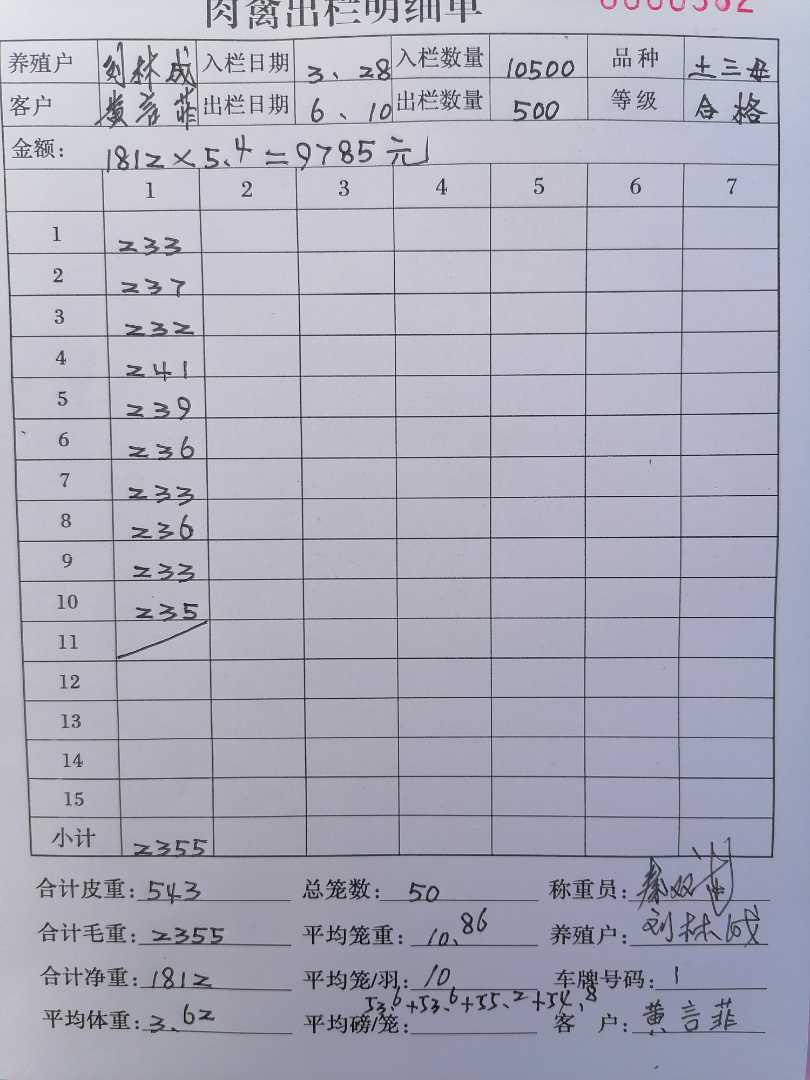 肉禽出栏明细单
养殖户 刘林成 入栏日期 3、28 入栏数量 10500 品种 土三母
客户 黄言菲 出栏日期 6、10 出栏数量 500 等级 合格
金额: 1812×5.4=9785元
1 2 3 4 5 6 7
1 233
2 237
3 232
4 241
5 239
6 236
7 233
8 236
9 233
10 235
11
12
13
14
15
小计 2355
合计皮重: 543 总笼数: 50 称重员:
合计毛重: 2355 平均笼重: 10.86 养殖户: 刘林成
合计净重: 1812 平均笼/羽: 10 车牌号码: 1
53.6+53.6+55.2+54.8
平均体重: 3.62 平均磅/笼: 客户: 黄言菲